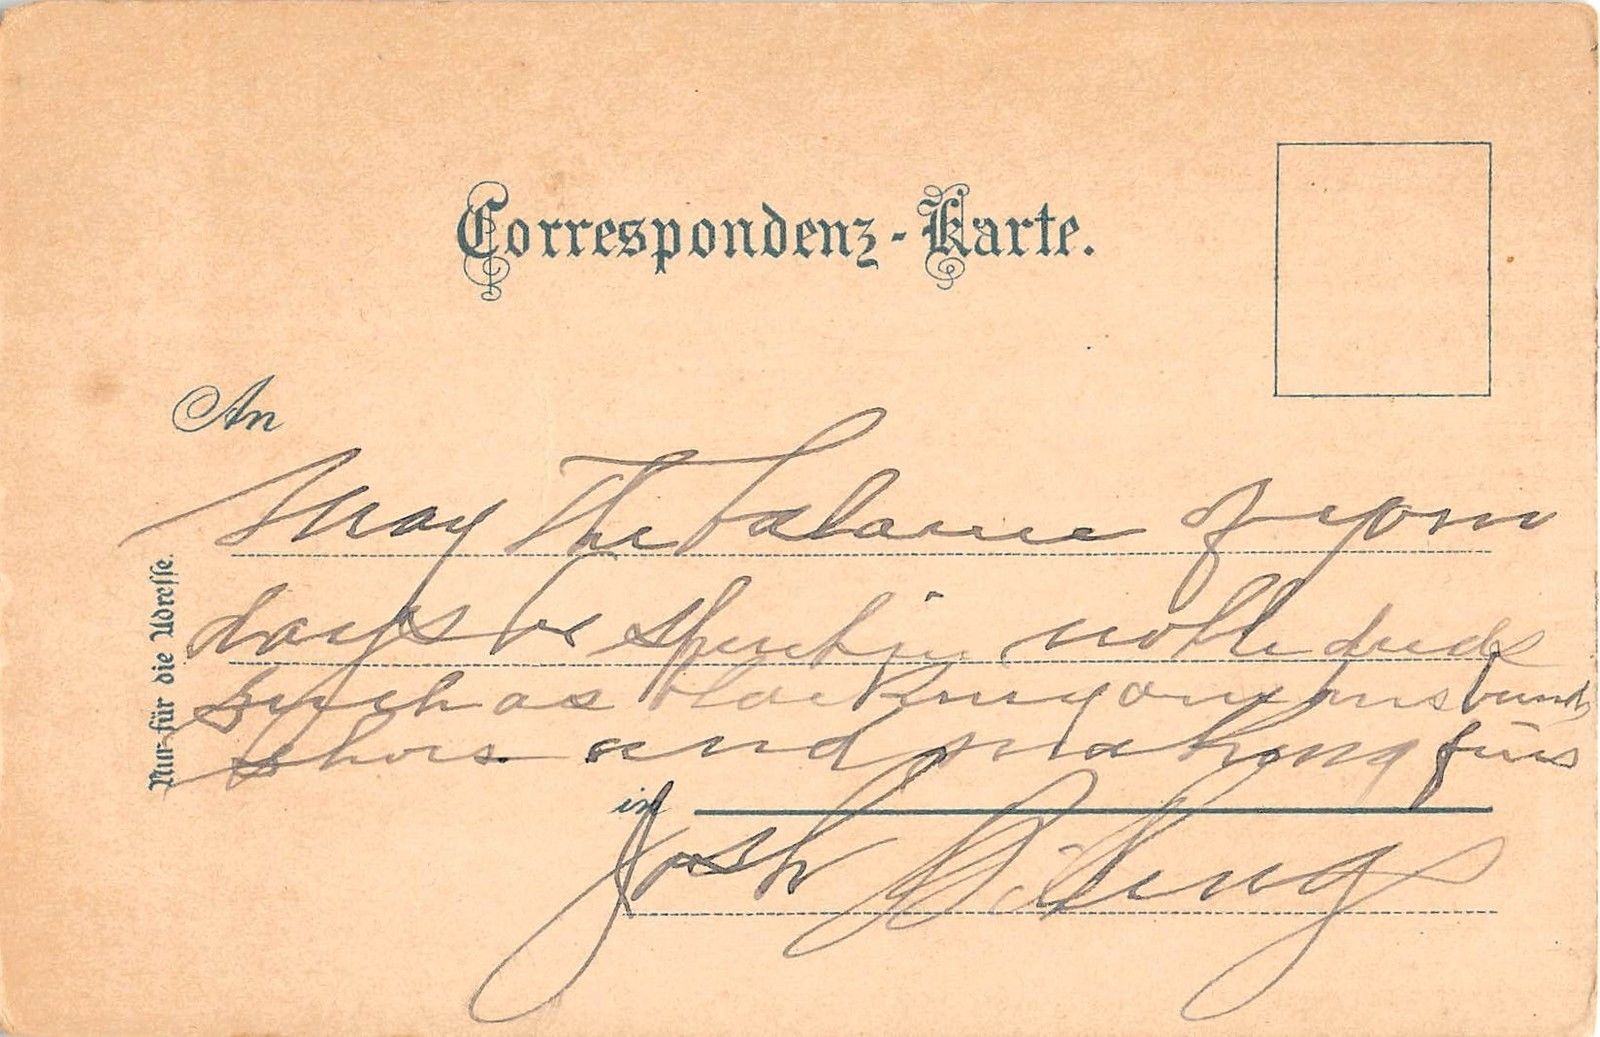 Correspondenz-Karte.
An
May the balance of your
days be spent in noble deeds
such as blacking your husbands
shoes. and making fires
in
Josh Billings
Nur für die Adresse.